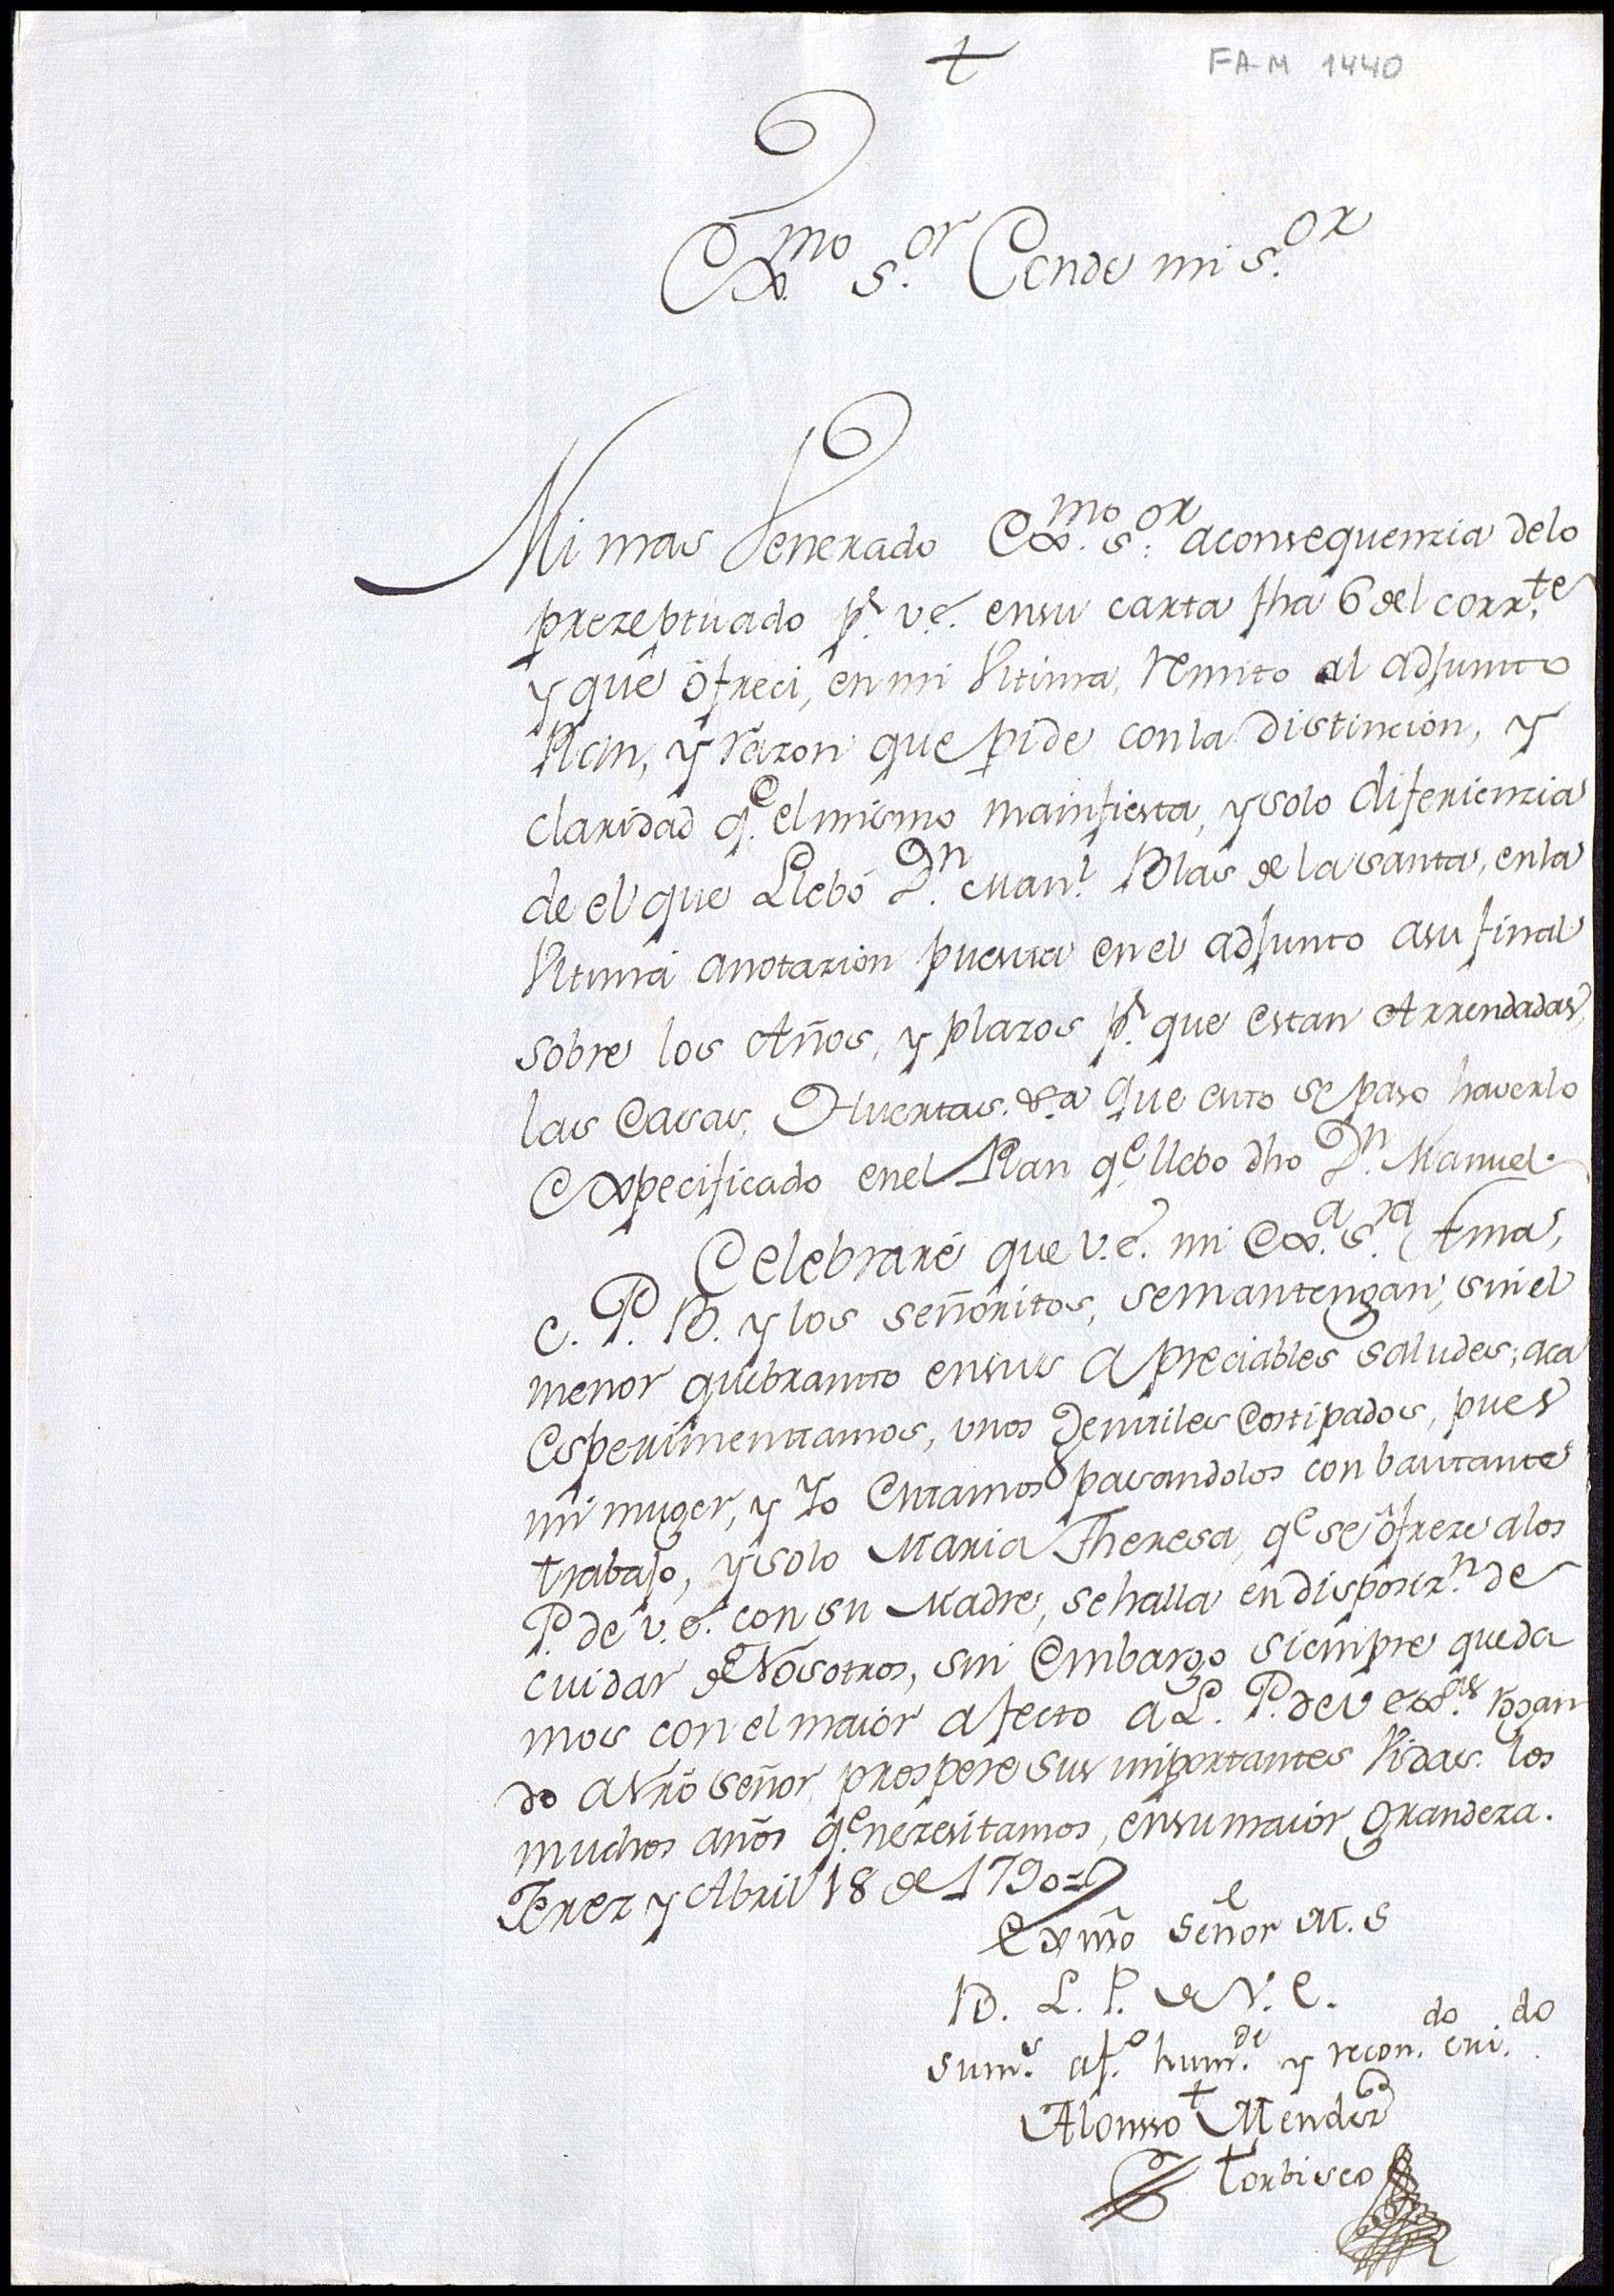 †
FA-M 1440
Ex.mo s.or Conde mi s.or
Mi mas Venerado Ex.mo s.or aconsequenzia delo
prezeptuado p.r v.e. ensu carta fha 6 del corr.te
y que ofreci, en mi Vltima, remito al adjunto
Plan, y razon que pide con la distincion, y
claridad q.e el mismo mainfiesta, y solo diferienzia
de el que Llebó D.n Man.l Blas de la santa, en la
Vltima anotazion puesta en el adjunto asu final
sobre los Años, y plazos p.r que estan Arrendadas,
las Casas, Huertas. &.a que esto se paso haverlo
Expecificado enel Plan q.e llebo dho D.n Manuel.
Celebraré que v.e. mi Ex.a s.ra Ama,
C. P. B. y los señoritos, semantengan, sin el
menor quebranto ensus apreciables saludes; aca
Esperimentamos, vnos Jentiles Costipados, pues
mi muger, y Yo Estamos pasandolos con bastante
trabajo, y solo Maria Theresa, q.e se ofreze alos
P. de v.e. con su Madre, se halla en disposiz.n de
cuidar de Nosotros, sin Embargo siempre queda
mos con el maior afecto a L. P. de v exx.as rogan
do a Nro señor, prospere sus importantes Vidas. los
muchos años q.e nezesitamos, ensu maior grandeza.
Jerez y Abril 18 de 1790=
Exmo Señor M. S
B. L. P. de V. E.
su m.s af.o hum.de y recon.do cri.do
Alonsso Mendez
torbisco